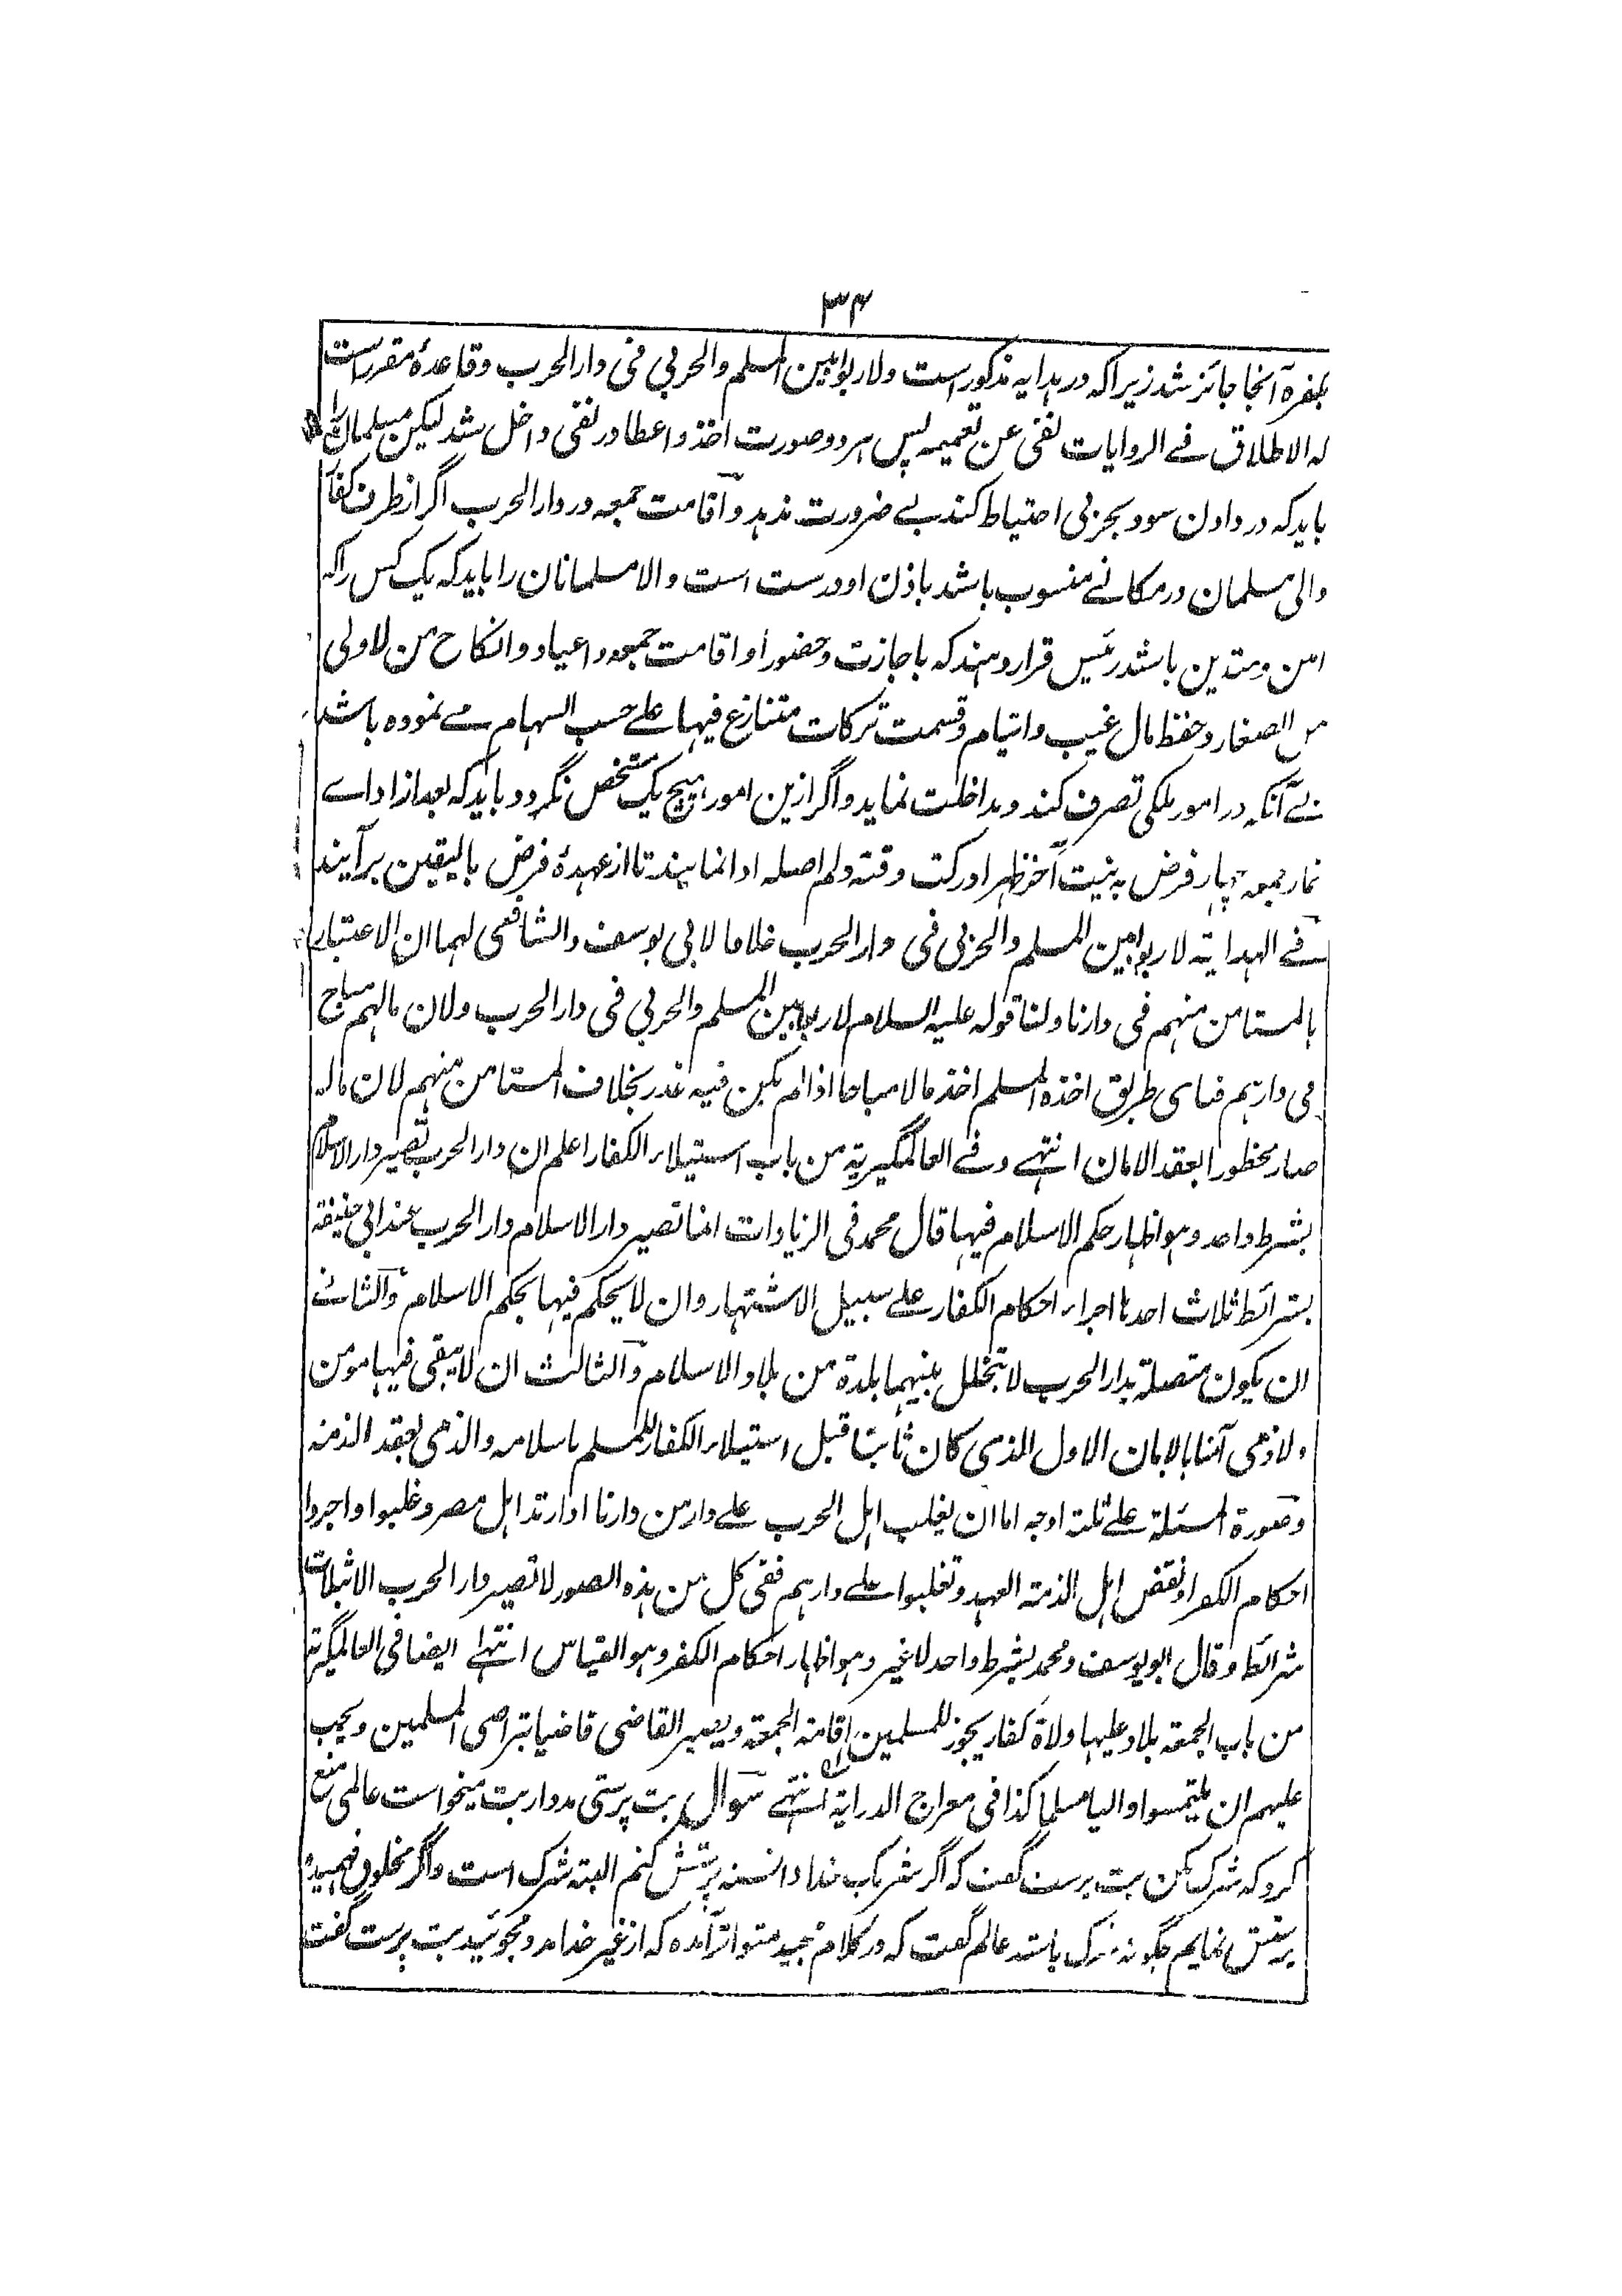 ۳۴
بکفره آنجا جائز شد زیراکه در هدایه مذکور است ولا ربوا بین المسلم والحربی فی دار الحرب وقاعدهٔ مقررست
له الاطلاق فے الروایات نفی عن تعمیمه پس هر دو صورت اخذ و اعطا در نفی داخل شد لیکن مسلمان را
باید که در دادن سود بحربی احتیاط کند بے ضرورت ندهد و اقامت جمعه در دار الحرب اگر از طرف کفار
والی مسلمان در مکانے منسوب باشد باذن او درست است والا مسلمانان را باید که یک کس را که
امین و متدین باشد رئیس قرار دهند که باجازت و حضور او اقامت جمعه و اعیاد و انکاح من لا ولی
من الصغار و حفظ مال غیب و ایتام و قسمت ترکات متنازع فیها علے حسب السهام مے نموده باشد
بے آنکه در امور ملکی تصرف کند و مداخلت نماید و اگر ازین امور هیچ یک متشخص نگردد باید که بعد از اداے
نماز جمعه چهار فرض به نیت آخر ظهر ادرکت وقته ولم اصله ادا نمایند تا از عهدهٔ فرض بالیقین برآیند
فے الهدایة لا ربوا بین المسلم والحربی فی دار الحرب خلافا لابی یوسف والشافعی لهما ان الاعتبار
بالمستامن منهم فی دارنا ولنا قوله علیه السلام لا ربوا بین المسلم والحربی فی دار الحرب ولان مالهم مباح
فی دارهم فبای طریق اخذه المسلم اخذ مالا مباحا اذا لم یکن فیه غدر بخلاف المستامن منهم لان ماله
صار محظورا بعقد الامان انتهے وفے العالمگیریة من باب استیلاء الکفار اعلم ان دار الحرب تصیر دار الاسلام
بشرط واحد وهو اظهار حکم الاسلام فیها قال محمد فی الزیادات انما تصیر دار الاسلام دار الحرب عند ابی حنیفة
بشرائط ثلاث احدها اجراء احکام الکفار علے سبیل الاشتهار وان لا یحکم فیها بحکم الاسلام والثانے
ان یکون متصلة بدار الحرب لا تتخلل بینهما بلدة من بلاد الاسلام والثالث ان لا یبقی فیها مومن
ولا ذمی آمنا بالامان الاول الذی کان ثابتا قبل استیلاء الکفار للمسلم باسلامه والذمی بعقد الذمة
وصورة المسئلة علے ثلثة اوجه اما ان یغلب اهل الحرب علے دار من دارنا او ارتد اهل مصر وغلبوا واجروا
احکام الکفر او نقض اهل الذمة العهد وتغلبوا علے دارهم ففی کل من هذه الصور لا تصیر دار الحرب الا بثلاث
شرائط وقال ابو یوسف ومحمد بشرط واحد لا غیر وهو اظهار احکام الکفر وهو القیاس انتهے ایضا فی العالمگیریة
من باب الجمعة بلاد علیها ولاة کفار یجوز للمسلمین اقامة الجمعة ویصیر القاضی قاضیا بتراضی المسلمین ویجب
علیهم ان یلتمسوا والیا مسلما کذا فی معراج الدرایة انتهے سوال بت پرستی مدد از بت میخواست عالمی منع
کرد که شرک مکن بت پرست گفت که اگر شریک خدا دانسته پرستش کنم البته شرک است واگر مخلوق فهمیده
پرستش نمایم چگونه شرک باشد عالم گفت که در کلام مجید متواتر آمده که از غیر خدا مدد مجوئید بت پرست گفت